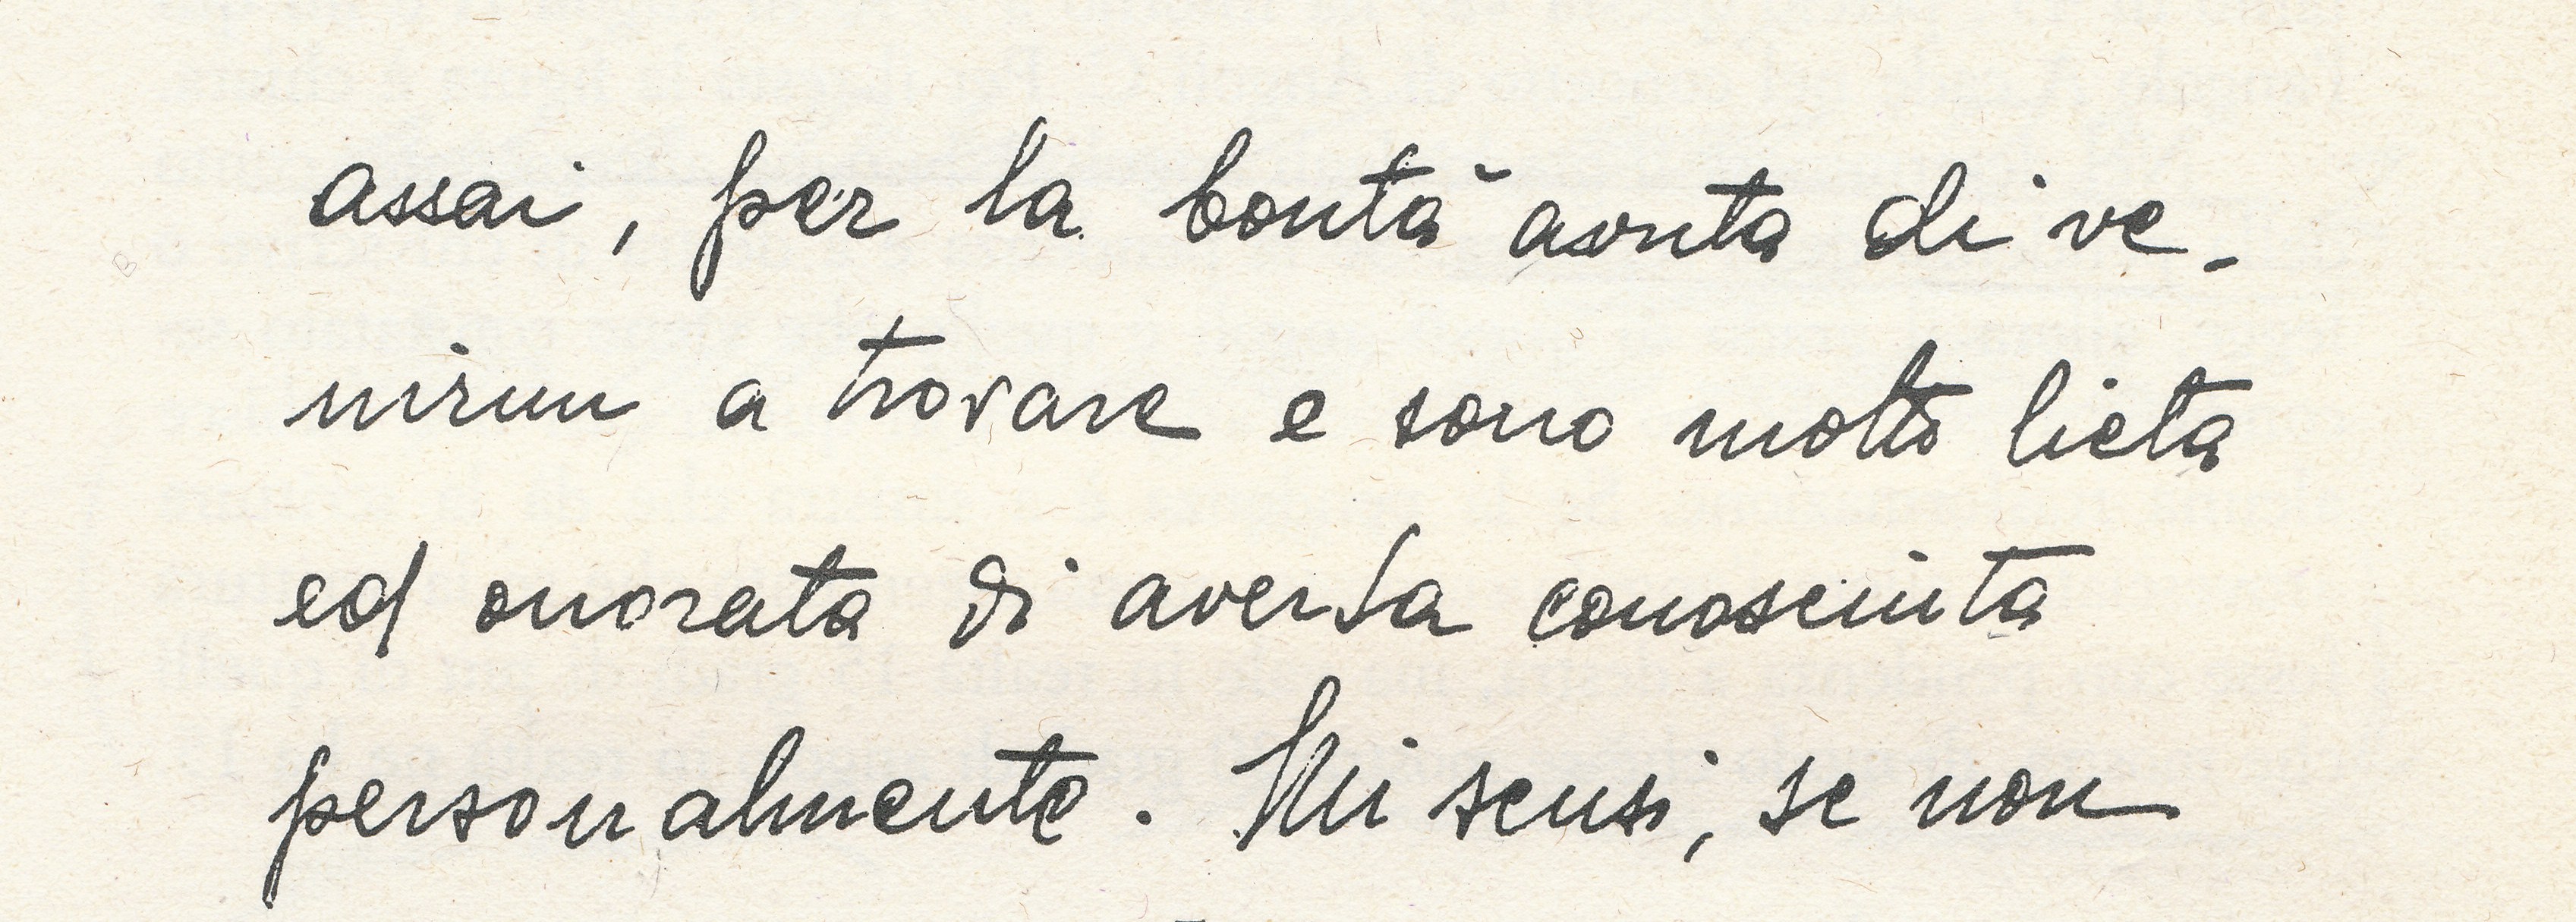 assai, per la bontà avuta di ve-
nirmi a trovare e sono molto lieta
ed onorata di averLa conosciuta
personalmente. Mi scusi, se non